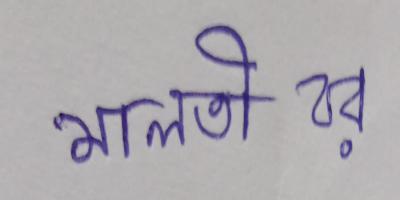 মালতী বর